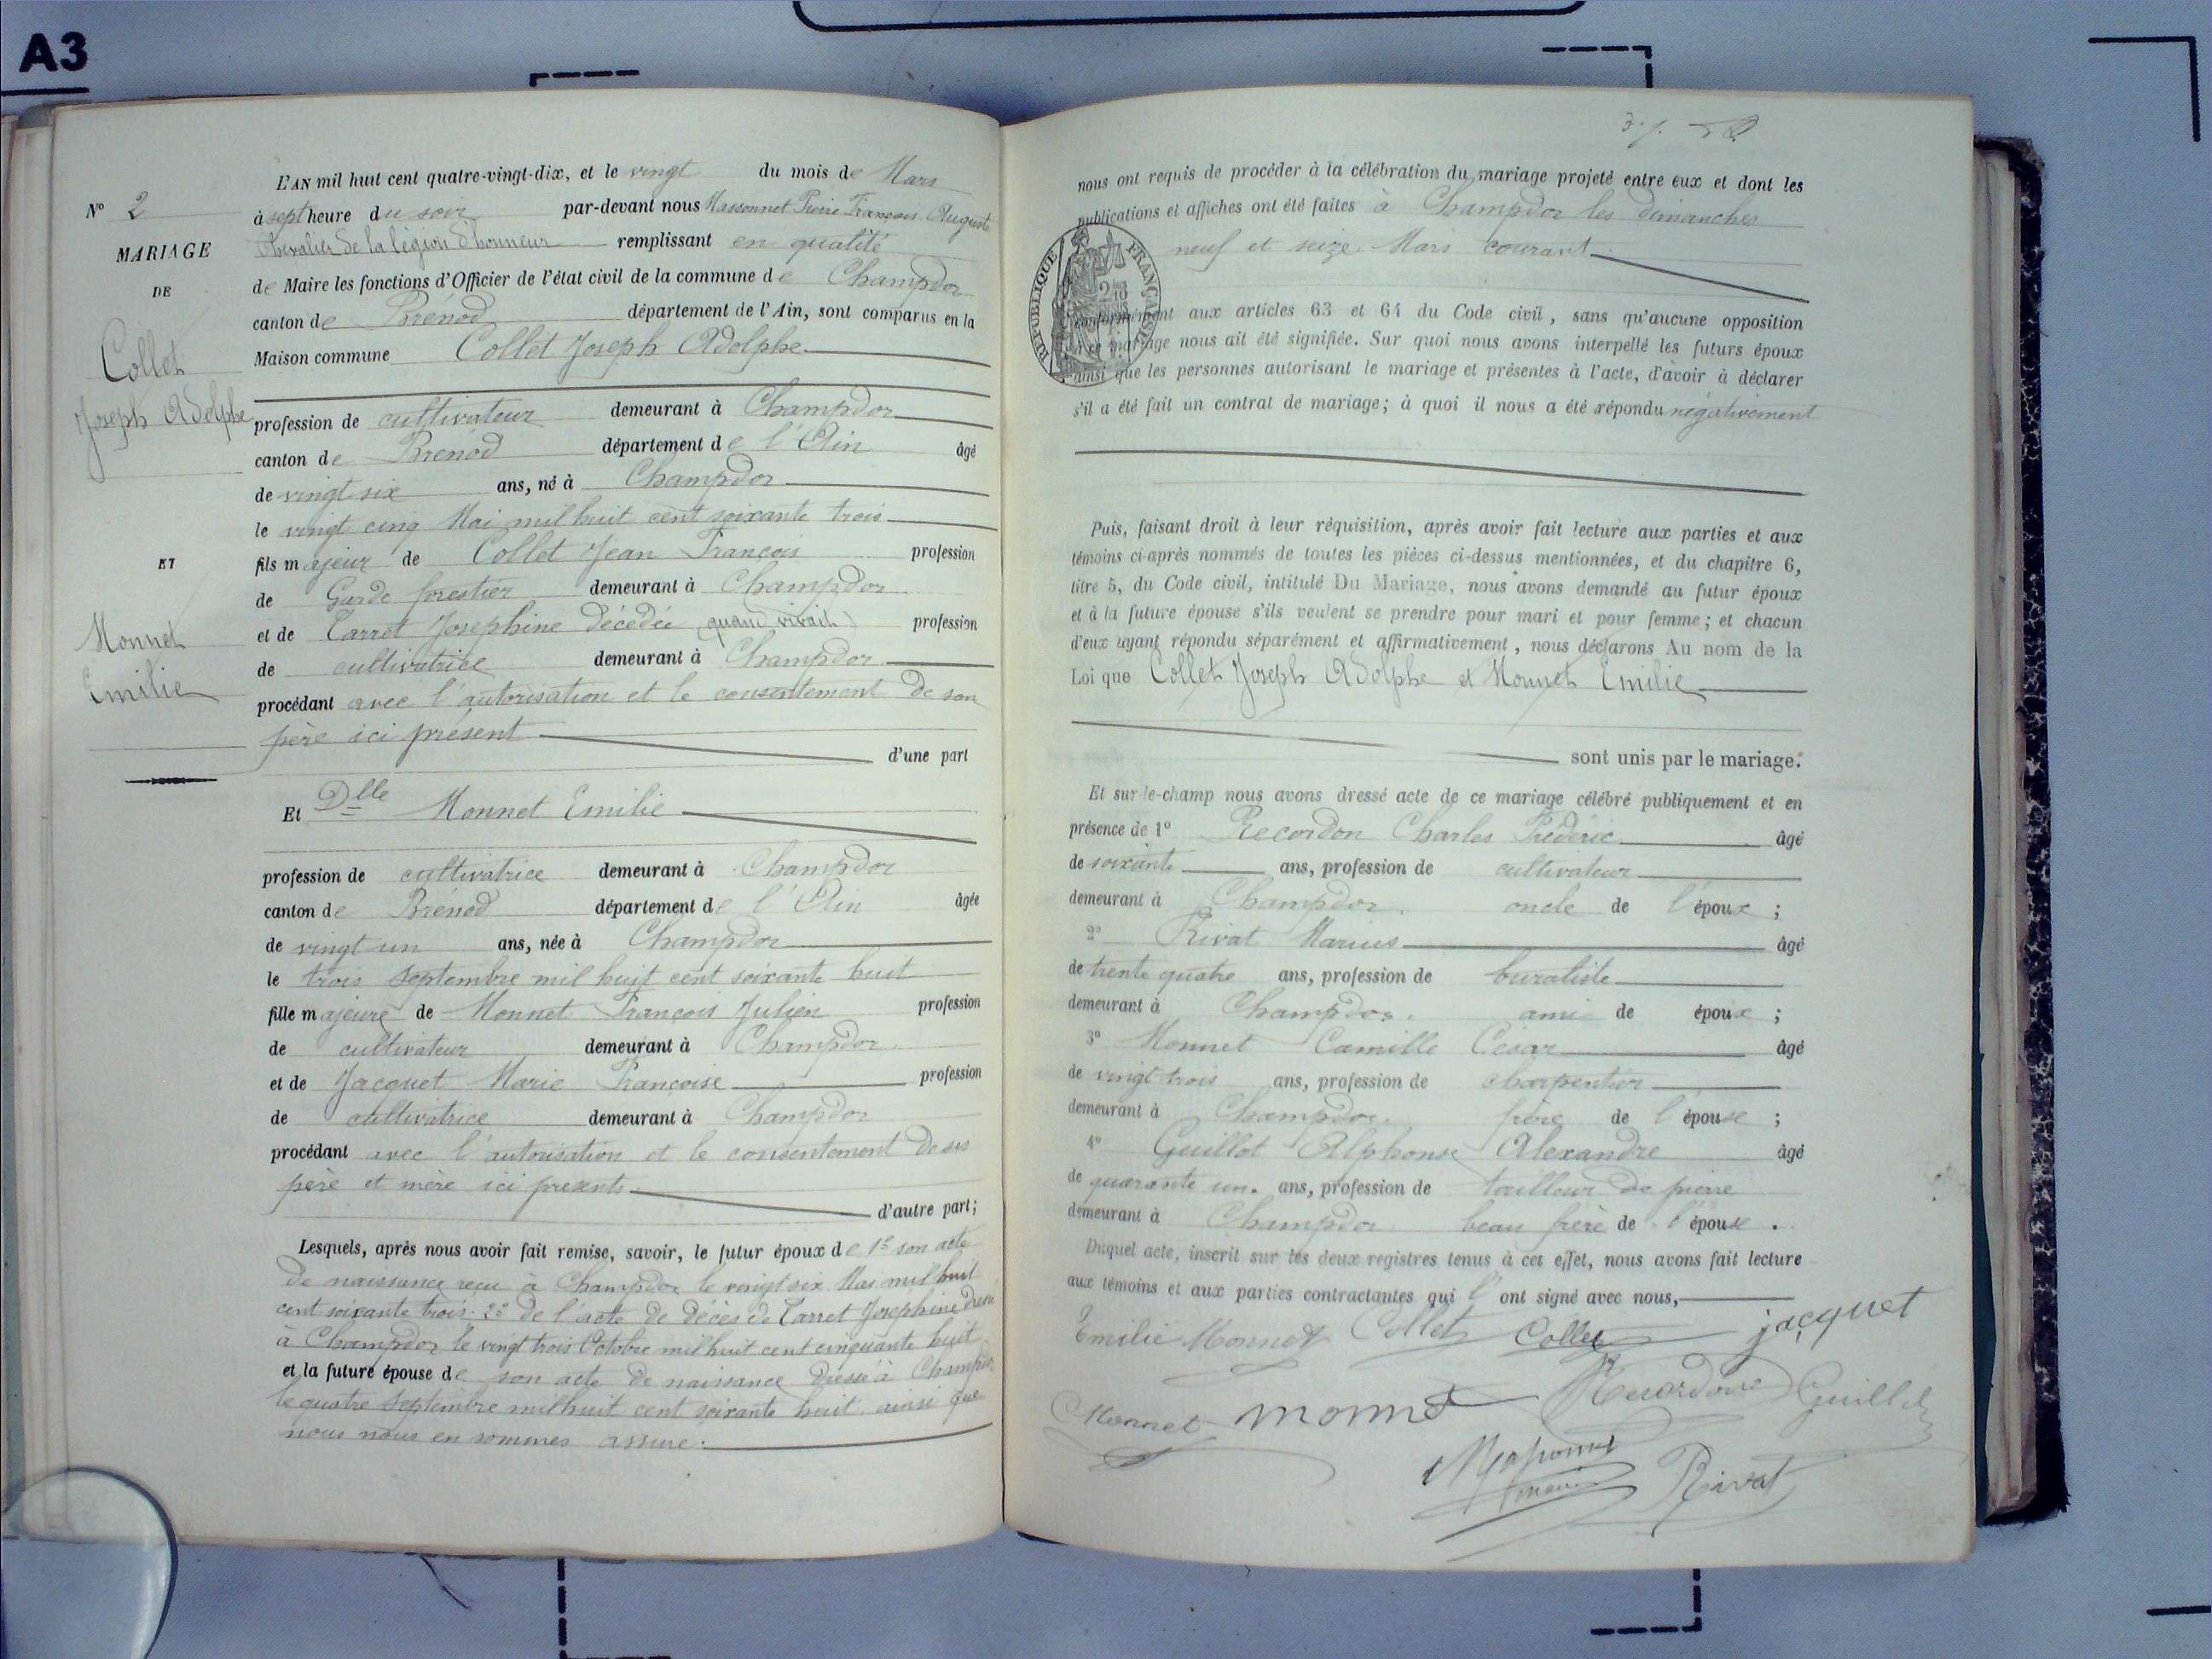 A3
L'AN mil huit cent quatre-vingt-dix, et le vingt du mois de Mars
à sept heure du soir par-devant nous Massonnet Pierre François Auguste
Chevalier de la légion d'honneur remplissant en qualité
de Maire les fonctions d'Officier de l'état civil de la commune de Champdor
canton de Brénod département de l'Ain, sont comparus en la
Maison commune Collet Joseph Adolphe
N° 2
MARIAGE
DE
Collet
Joseph Adolphe
ET
Monnet
Emilie
profession de cultivateur demeurant à Champdor
canton de Brénod département de l'Ain âgé
de vingt six ans, né à Champdor
le vingt cinq Mai mil huit cent soixante trois
fils majeur de Collet Jean François profession
de Garde forestier demeurant à Champdor
et de Carret Josephine décédée (quand vivait) profession
de cultivatrice demeurant à Champdor
procédant avec l'autorisation et le consentement de son
père ici présent
d'une part
Et Dlle Monnet Emilie
profession de cultivatrice demeurant à Champdor
canton de Brénod département de l'Ain âgée
de vingt un ans, née à Champdor
le trois septembre mil huit cent soixante huit
fille majeure de Monnet François Julien profession
de cultivateur demeurant à Champdor
et de Jacquet Marie Françoise profession
de cultivatrice demeurant à Champdor
procédant avec l'autorisation et le consentement de ses
père et mère ici présents
d'autre part;
Lesquels, après nous avoir fait remise, savoir, le futur époux de 1° son acte
de naissance reçu à Champdor le vingt six Mai mil huit
cent soixante trois. 2° de l'acte de décès de Carret Josephine dressé
à Champdor le vingt trois Octobre mil huit cent cinquante huit
et la future épouse de son acte de naissance dressé à Champdor
le quatre septembre mil huit cent soixante huit ainsi que
nous nous en sommes assuré.
nous ont requis de procéder à la célébration du mariage projeté entre eux et dont les
publications et affiches ont été faites à Champdor les dimanches
neuf et seize Mars courant
RÉPUBLIQUE FRANÇAISE
conformément aux articles 63 et 64 du Code civil, sans qu'aucune opposition
à ce mariage nous ait été signifiée. Sur quoi nous avons interpellé les futurs époux
ainsi que les personnes autorisant le mariage et présentes à l'acte, d'avoir à déclarer
s'il a été fait un contrat de mariage; à quoi il nous a été répondu négativement
Puis, faisant droit à leur réquisition, après avoir fait lecture aux parties et aux
témoins ci-après nommés de toutes les pièces ci-dessus mentionnées, et du chapitre 6,
titre 5, du Code civil, intitulé Du Mariage, nous avons demandé au futur époux
et à la future épouse s'ils veulent se prendre pour mari et pour femme; et chacun
d'eux ayant répondu séparément et affirmativement, nous déclarons Au nom de la
Loi que Collet Joseph Adolphe et Monnet Emilie
sont unis par le mariage.
Et sur-le-champ nous avons dressé acte de ce mariage célébré publiquement et en
présence de 1° Recordon Charles Frédéric âgé
de soixante ans, profession de cultivateur
demeurant à Champdor oncle de l'époux;
2° Rivat Marius âgé
de trente quatre ans, profession de buraliste
demeurant à Champdor. ami de époux;
3° Monnet Camille César âgé
de vingt trois ans, profession de charpentier
demeurant à Champdor. frère de l'épouse;
4° Guillot Alphonse Alexandre âgé
de quarante un. ans, profession de tailleur de pierre
demeurant à Champdor beau frère de l'épouse.
Duquel acte, inscrit sur les deux registres tenus à cet effet, nous avons fait lecture
aux témoins et aux parties contractantes qui l'ont signé avec nous,
Emilie Monnet Collet Collet jacquet
C Monnet monnet Recordon Guillot
Massonnet Rivat